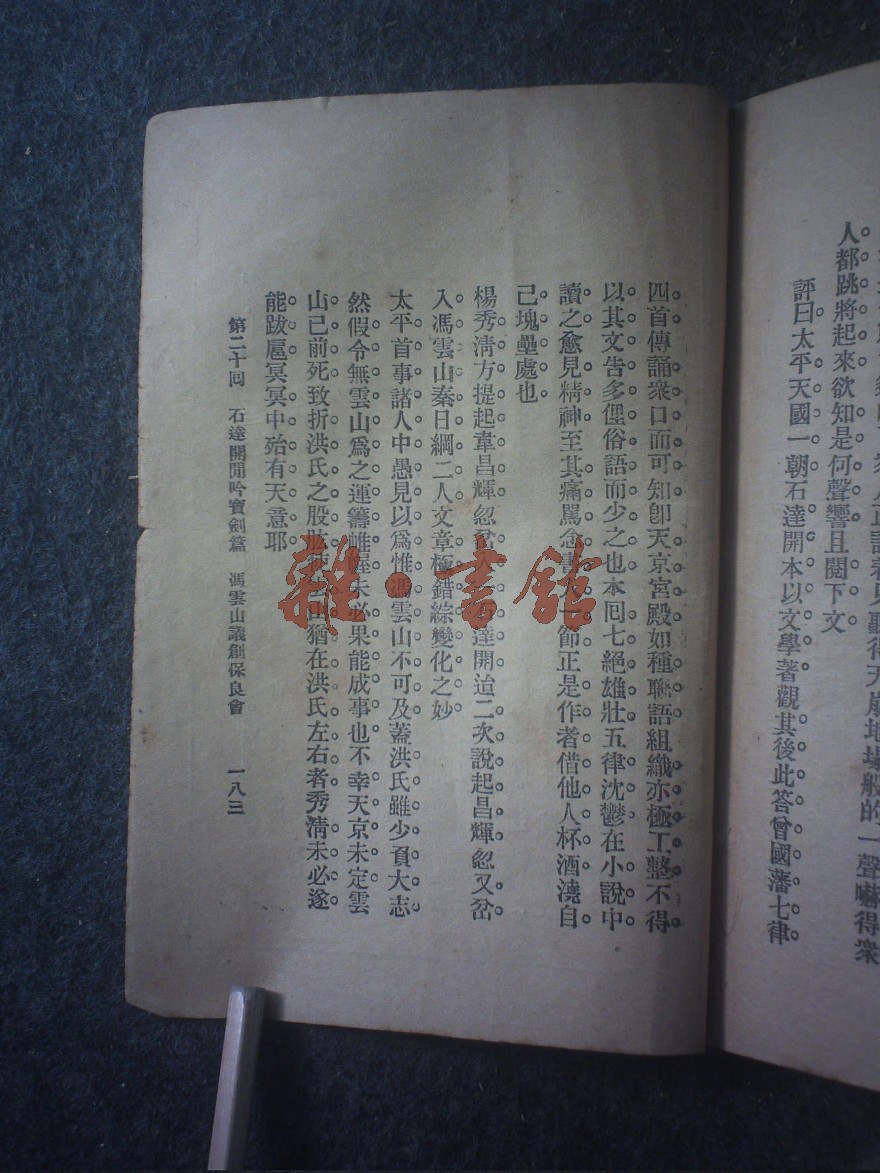 人都跳將起來欲知是何聲響且閱下文
評曰太平天國一朝石達開本以文學著觀其後此答曾國藩七律
四首傳誦衆口而可知卽天京宮殿如種聯語組織亦極工整不得
以其文告多俚俗語而少之也本回七絕雄壯五律沈鬱在小說中
讀之愈見精神至其痛罵念書人一節正是作者借他人杯酒澆自
己塊壘處也
楊秀淸方提起韋昌輝忽岔入達開迨二次說起昌輝忽又岔
入馮雲山秦日綱二人文章極錯綜變化之妙
太平首事諸人中愚見以爲惟馮雲山不可及蓋洪氏雖少負大志
然假令無雲山爲之運籌帷幄未必果能成事也不幸天京未定雲
山已前死致折洪氏之股肱使雲山猶在洪氏左右者秀淸未必遂
能跋扈冥冥中殆有天意耶
第二十回 石達開閒吟寶劍篇 馮雲山議創保良會 一八三
雜·書館